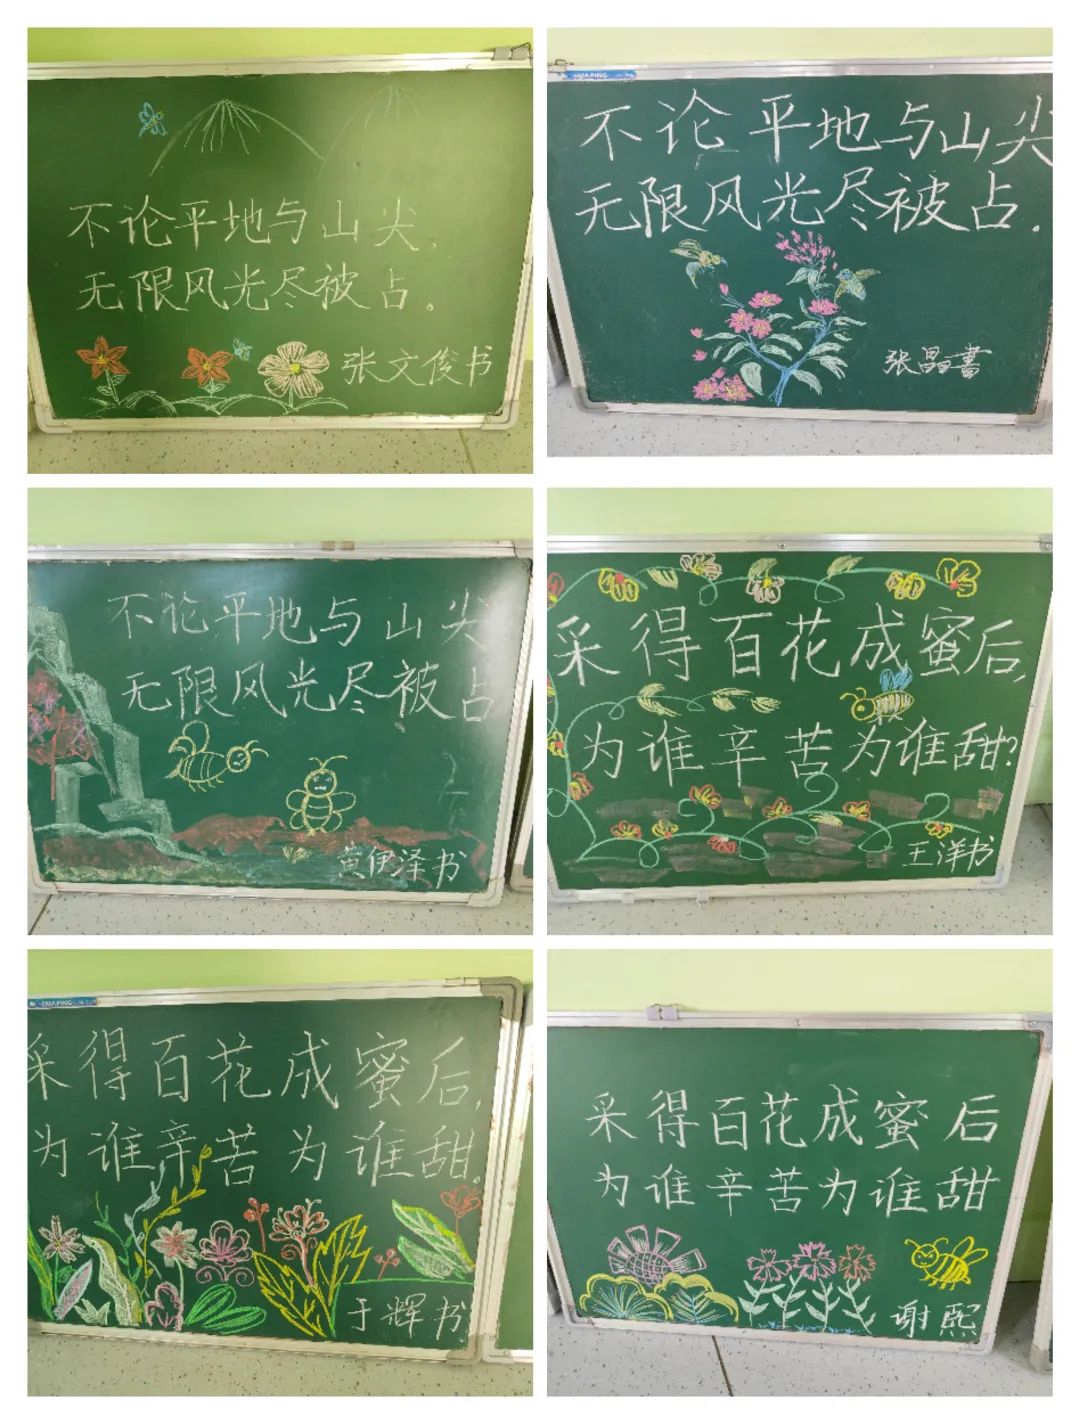 不论平地与山尖，
无限风光尽被占。
张文俊书
HUA PING
不论平地与山尖
无限风光尽被占.
张晶書
不论平地与山尖
无限风光尽被占
黄伊泽书
采得百花成蜜后,
为谁辛苦为谁甜?
王洋书
HUA PING
采得百花成蜜后,
为谁辛苦为谁甜.
于辉书
采得百花成蜜后
为谁辛苦为谁甜
谢熙